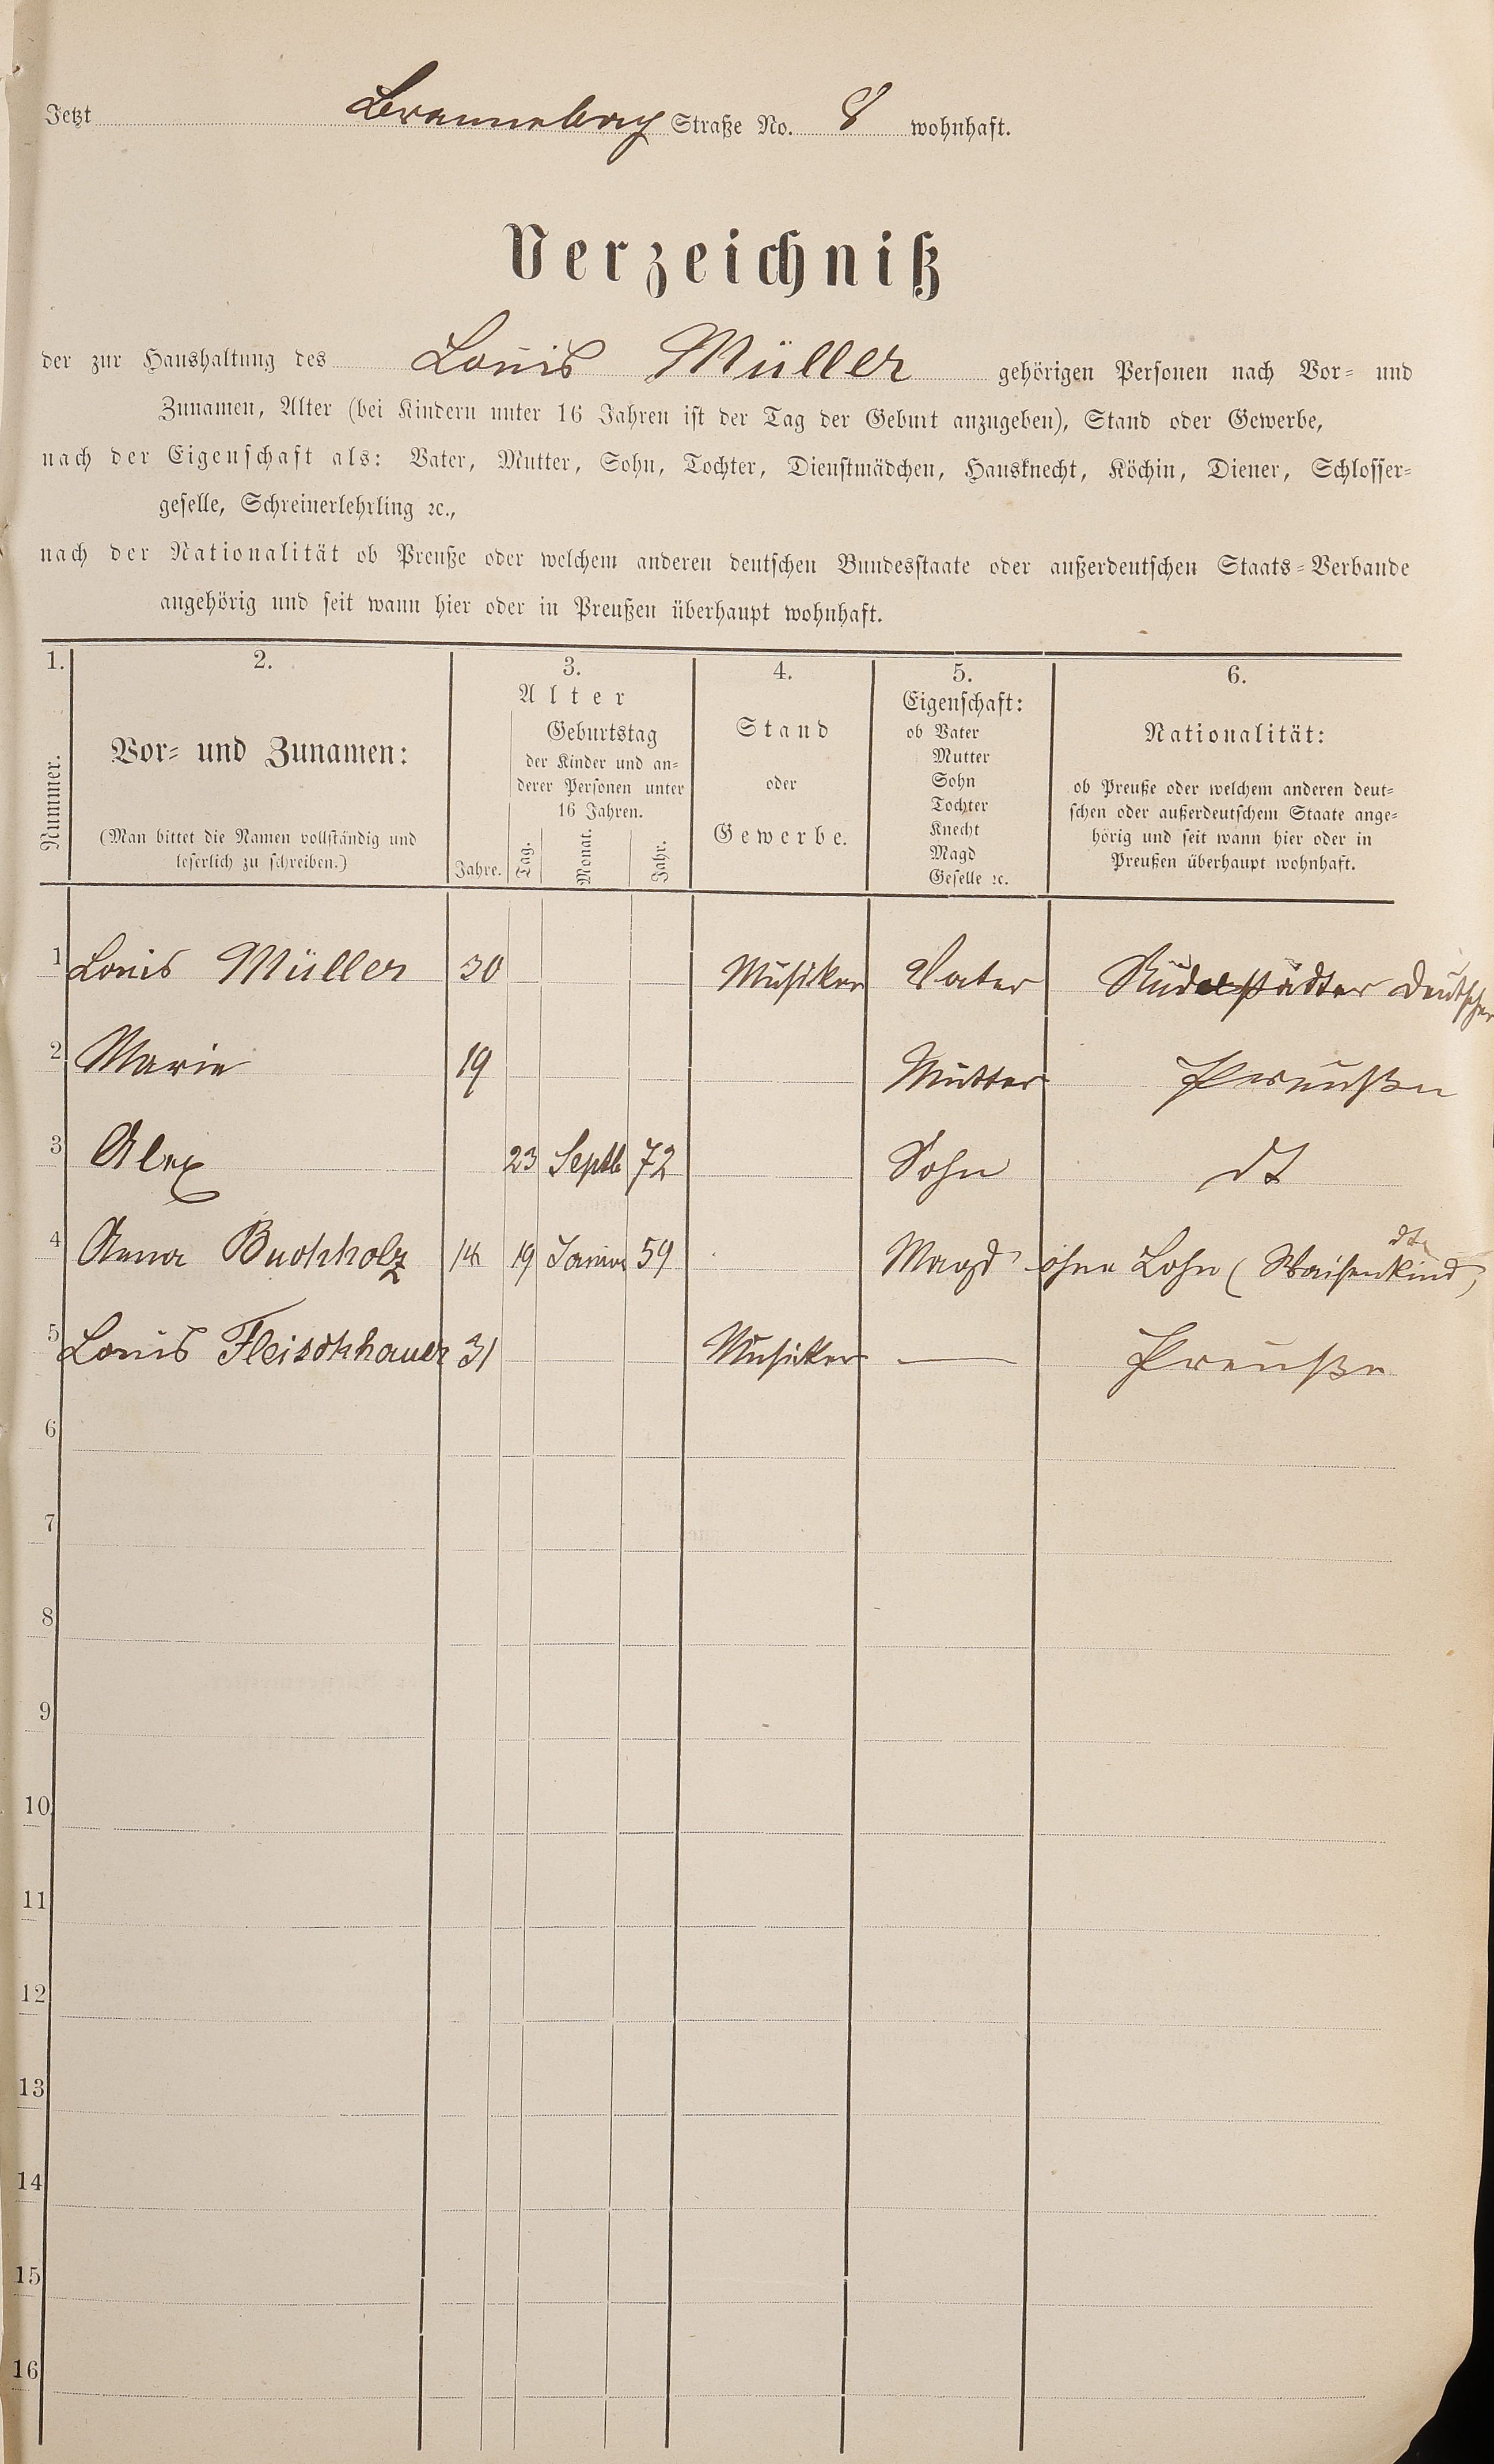 Jetzt Straße No. 8 wohnhaft.
Verzeichniß
der zur Haushaltung des Louis Müller gehörigen Personen nach Vor- und
Zunamen, Alter (bei Kindern unter 16 Jahren ist der Tag der Geburt anzugeben), Stand oder Gewerbe,
nach der Eigenschaft als: Vater, Mutter, Sohn, Tochter, Dienstmädchen, Hausknecht, Köchin, Diener, Schlosser-
geselle, Schreinerlehrling ꝛc.,
nach der Nationalität ob Preuße oder welchem anderen deutschen Bundesstaate oder außerdeutschen Staats-Verbande
angehörig und seit wann hier oder in Preußen überhaupt wohnhaft.
1. 2. 3. 4. 5. 6.
Nummer.
Vor- und Zunamen:
(Man bittet die Namen vollständig und
leserlich zu schreiben.)
Alter
Jahre.
Geburtstag
der Kinder und an-
derer Personen unter
16 Jahren.
Tag. Monat. Jahr.
Stand
oder
Gewerbe.
Eigenschaft:
ob Vater
Mutter
Sohn
Tochter
Knecht
Magd
Geselle ꝛc.
Nationalität:
ob Preuße oder welchem anderen deut-
schen oder außerdeutschem Staate ange-
hörig und seit wann hier oder in
Preußen überhaupt wohnhaft.
1 Louis Müller 30 Musiker Vater Rudolstädter Deutscher
2 Marie 19 Mutter Preußn
3 Alex 23 Septb 72 Sohn dt
4 Anna Buchholz 14 19 Januar 59 Magd ohne Lohn (Waisenkind) dt
5 Louis Fleischhauer 31 Musiker — Preuße
6
7
8
9
10
11
12
13
14
15
16